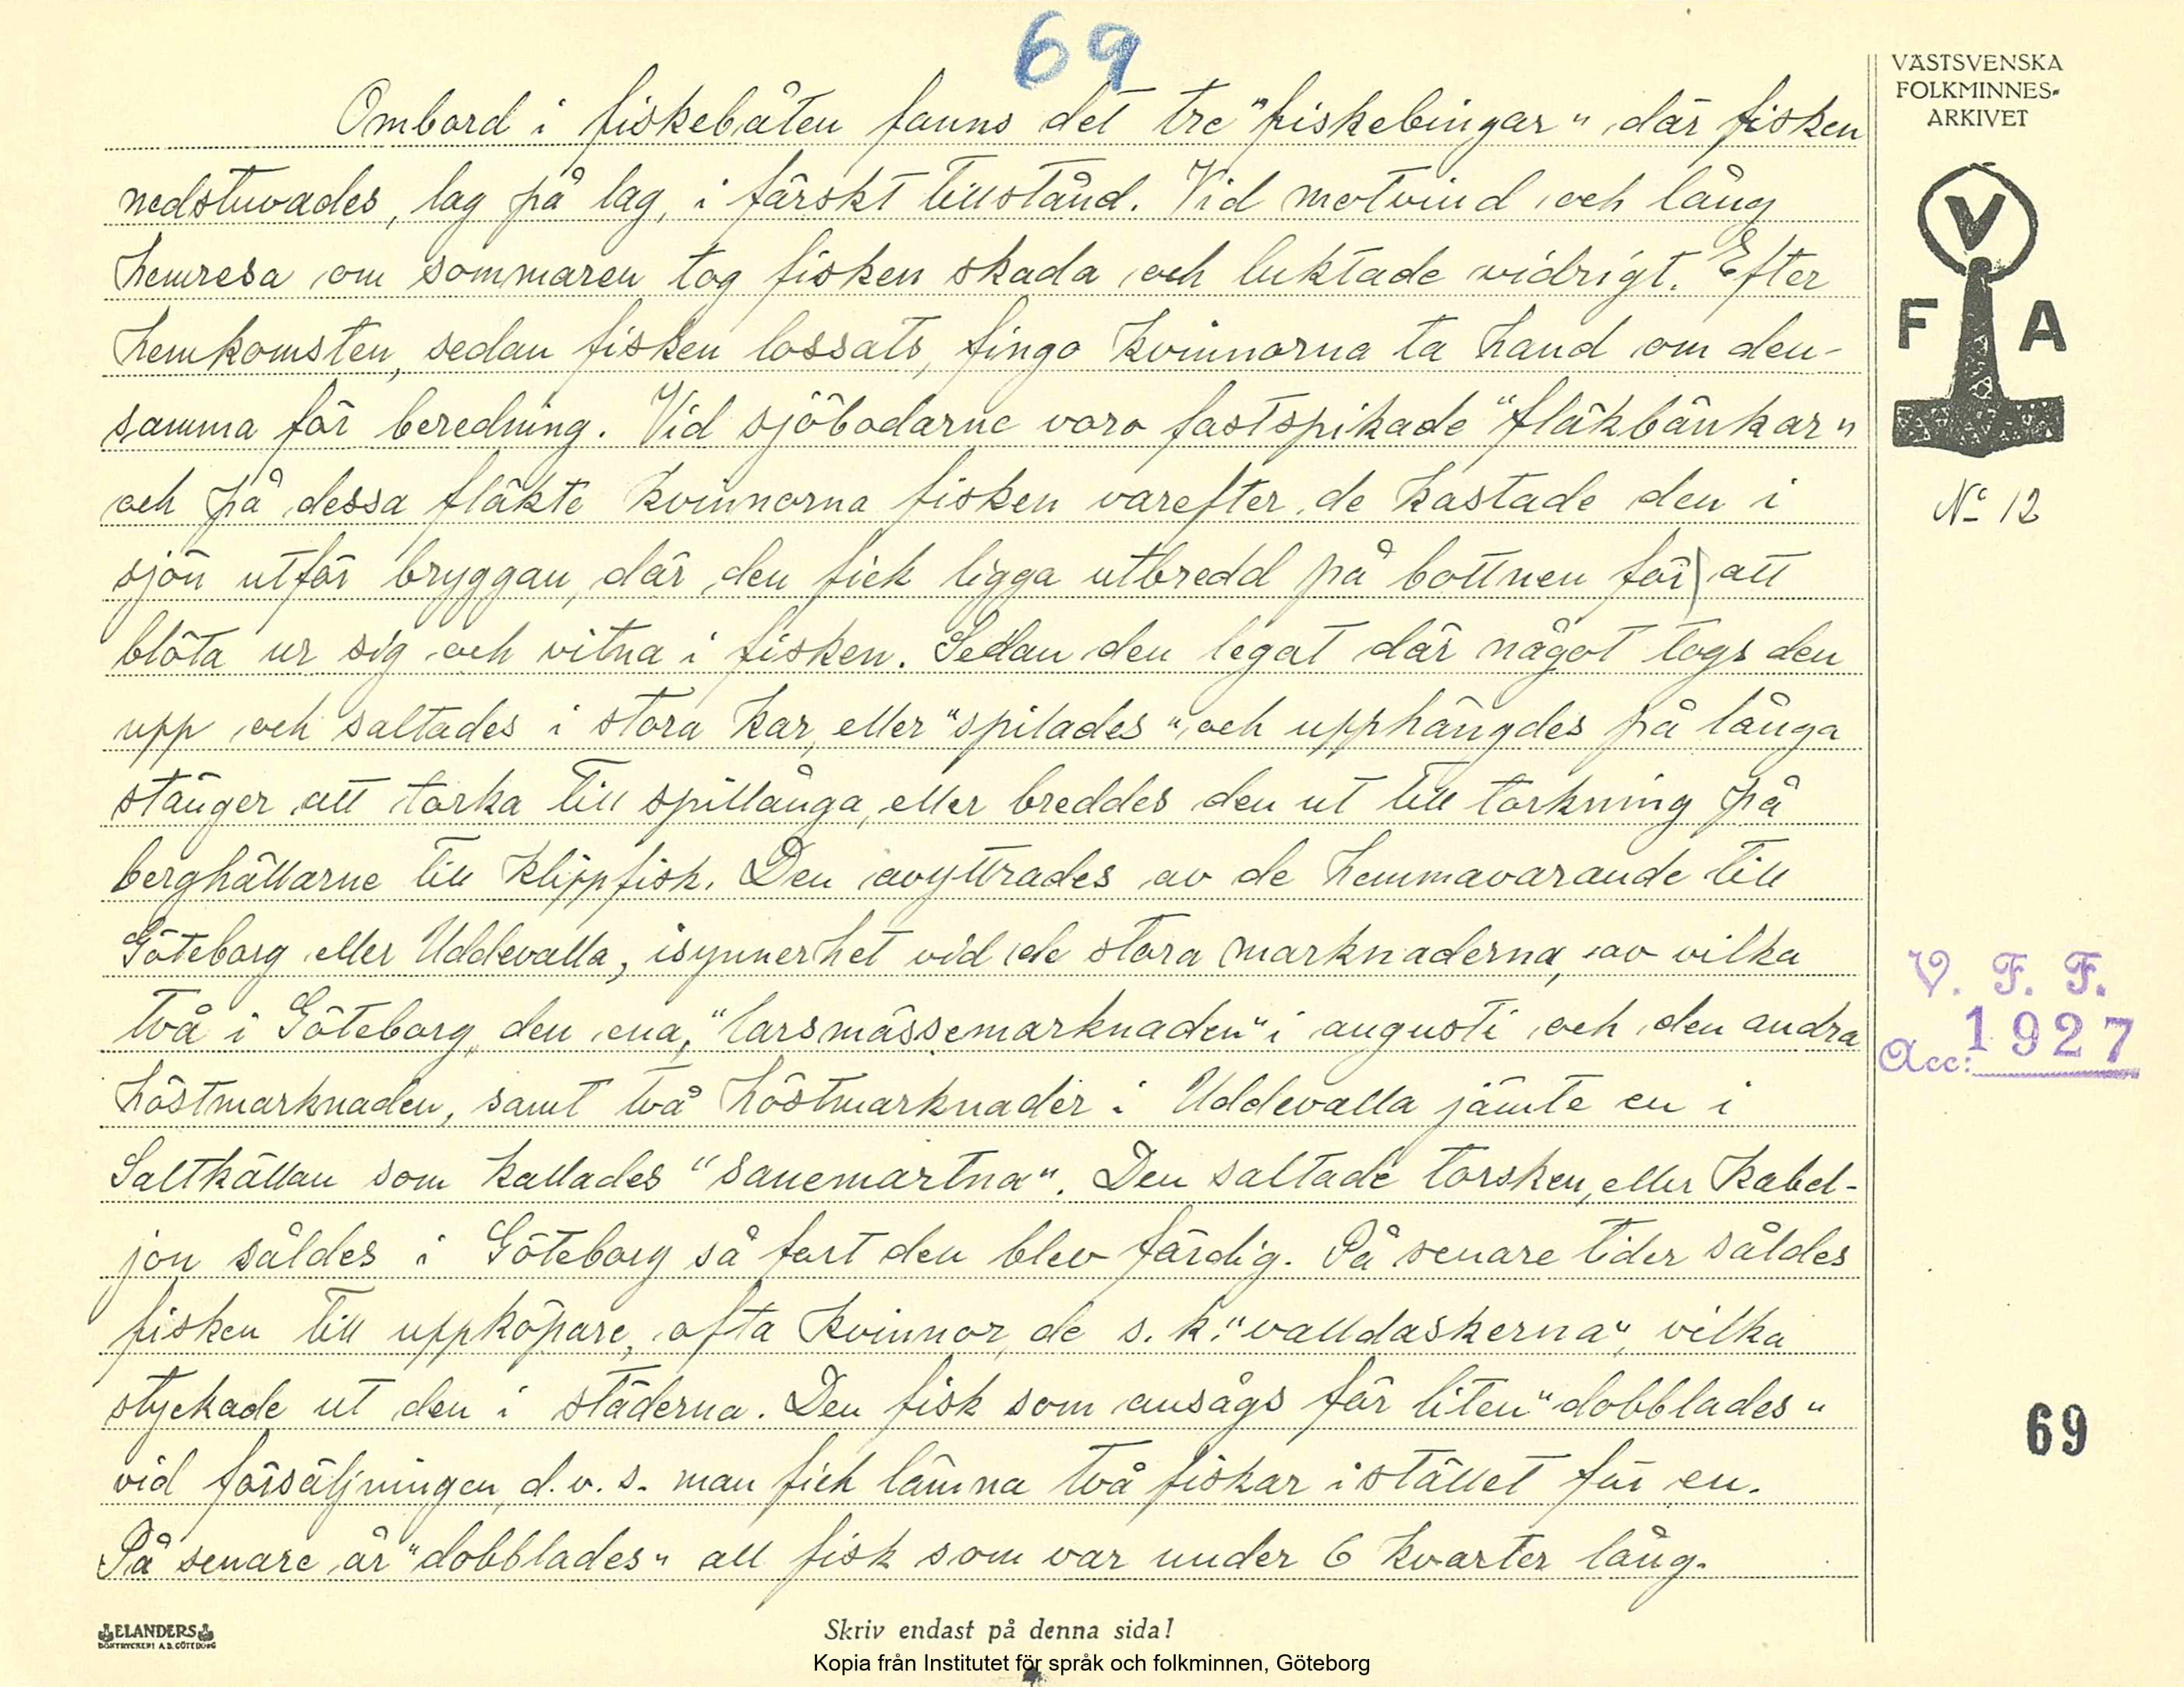 69
Ombord i fiskebåten fanns det tre "fiskebingar" där fisken
nedstuvades, lag på lag, i färskt tillstånd. Vid motvind och lång
hemresa om sommaren tog fisken skada och luktade vidrigt. Efter
hemkomsten, sedan fisken lossats, fingo kvinnorna ta hand om den-
samma för beredning. Vid sjöbodarne voro fastspikade "fläkbänkar"
och på dessa fläkte kvinnorna fisken varefter de kastade den i
sjön utför bryggan, där den fick ligga utbredd på bottnen för att
blöta ur sig och vitna i fisken. Sedan den legat där något togs den
upp och saltades i stora kar, eller "spilades" och upphängdes på långa
stänger att torka till spillånga, eller breddes den ut till torkning på
berghällarne till klippfisk. Den avyttrades av de hemmavarande till
Göteborg eller Uddevalla, isynnerhet vid de stora marknaderna, av vilka
två i Göteborg, den ena, "larsmässemarknaden" i augusti och den andra
höstmarknaden, samt två höstmarknader i Uddevalla jämte en i
Saltkällan som kallades "sanemartna". Den saltade torsken, eller kabel-
jon såldes i Göteborg så fort den blev färdig. På senare tider såldes
fisken till uppköpare, ofta kvinnor, de s. k. "valldaskerna", vilka
styckade ut den i städerna. Den fisk som ansågs för liten "dobblades"
vid försäljningen, d. v. s. man fick lämna två fiskar istället för en.
På senare år "dobblades" all fisk som var under 6 kvarter lång.
VÄSTSVENSKA
FOLKMINNES-
ARKIVET
V
F A
No 12
V. F. F.
Acc: 1927
69
ELANDERS
BOKTRYCKERI A.B. GÖTEBORG
Skriv endast på denna sida!
Kopia från Institutet för språk och folkminnen, Göteborg